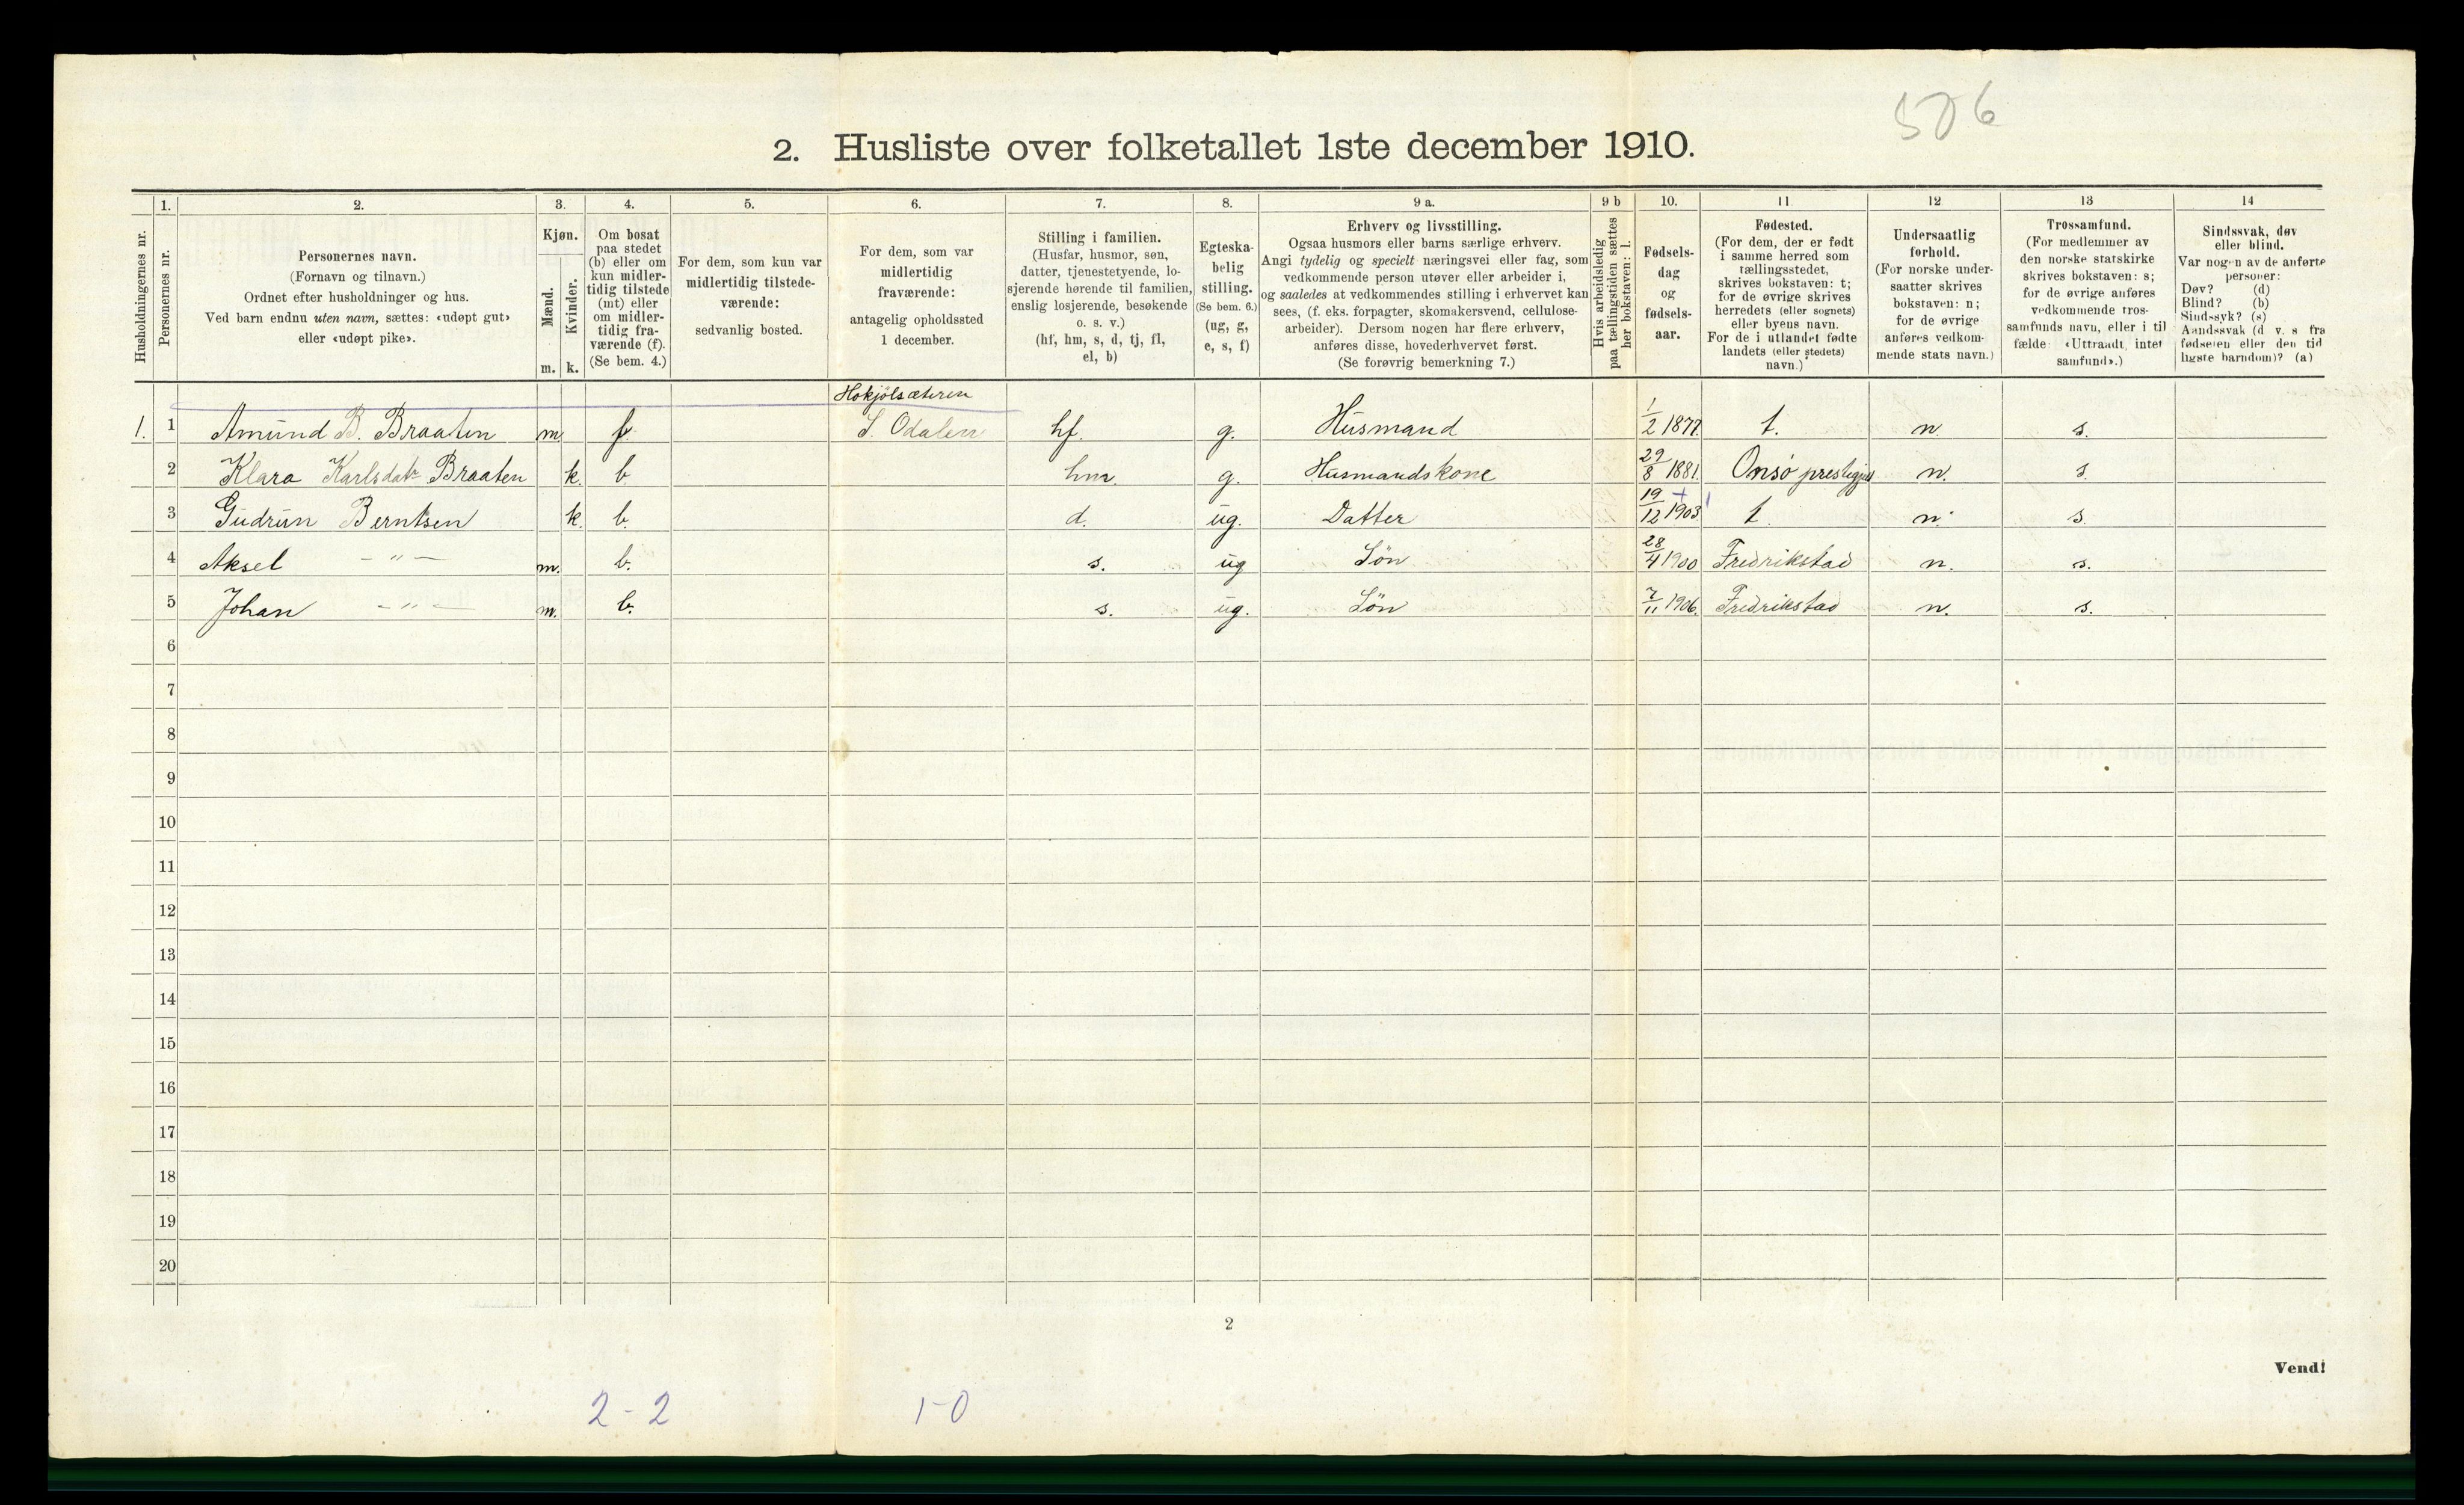 506
2. Husliste over folketallet 1ste december 1910.
1. 2. 3. 4. 5. 6. 7. 8. 9 a. 9 b 10. 11 12 13 14
Husholdningernes nr.
Personernes nr.
Personernes navn.
(Fornavn og tilnavn.)
Ordnet efter husholdninger og hus.
Ved barn endnu uten navn, sættes: «udøpt gut»
eller «udøpt pike».
Kjøn.
Mænd.
Kvinder.
m. k.
Om bosat
paa stedet
(b) eller om
kun midler-
tidig tilstede
(mt) eller
om midler-
tidig fra-
værende (f).
(Se bem. 4.)
For dem, som kun var
midlertidig tilstede-
værende:
sedvanlig bosted.
For dem, som var
midlertidig
fraværende:
antagelig opholdssted
1 december.
Stilling i familien.
(Husfar, husmor, søn,
datter, tjenestetyende, lo-
sjerende hørende til familien,
enslig losjerende, besøkende
o. s. v.)
(hf, hm, s, d, tj, fl,
el, b)
Egteska-
belig
stilling.
(Se bem. 6.)
(ug, g,
e, s, f)
Erhverv og livsstilling.
Ogsaa husmors eller barns særlige erhverv.
Angi tydelig og specielt næringsvei eller fag, som
vedkommende person utøver eller arbeider i,
og saaledes at vedkommendes stilling i erhvervet kan
sees, (f. eks. forpagter, skomakersvend, cellulose-
arbeider). Dersom nogen har flere erhverv,
anføres disse, hovederhvervet først.
(Se forøvrig bemerkning 7.)
Hvis arbeidsledig
paa tællingstiden sættes
her bokstaven: l.
Fødsels-
dag
og
fødsels-
aar.
Fødested.
(For dem, der er født
i samme herred som
tællingsstedet,
skrives bokstaven: t;
for de øvrige skrives
herredets (eller sognets)
eller byens navn.
For de i utlandet fødte
landets (eller stedets)
navn.)
Undersaatlig
forhold.
(For norske under-
saatter skrives
bokstaven: n;
for de øvrige
anføres vedkom-
mende stats navn.)
Trossamfund.
(For medlemmer av
den norske statskirke
skrives bokstaven: s;
for de øvrige anføres
vedkommende tros-
samfunds navn, eller i til
fælde: «Uttraadt, intet
samfund».)
Sindssvak, døv
eller blind.
Var nogen av de anførte
personer:
Døv? (d)
Blind? (b)
Sindssyk? (s)
Aandssvak (d v. s fra
fødselen eller den tid
ligste barndom)? (a)
Hokjölsæteren
1. 1 Amund B. Braaten m f S. Odalen hf. g. Husmand 1/2 1877. t. n. s.
2 Klara Karlsdatr Braaten k. b hm. g. Husmandskone 29/8 1881. Onsö prestegjeld n. s.
3 Gudrun Berntsen k. b. d. ug. Datter 19/12 1903 t n. s.
4 Aksel - " - m. b. s. ug Sön 28/4 1900 Fredrikstad n. s.
5 Johan - " - m. b. s. ug. Sön 7/11 1906. Fredrikstad n. s.
6
7
8
9
10
11
12
13
14
15
16
17
18
19
20
2
Vend!
2-2 1-0